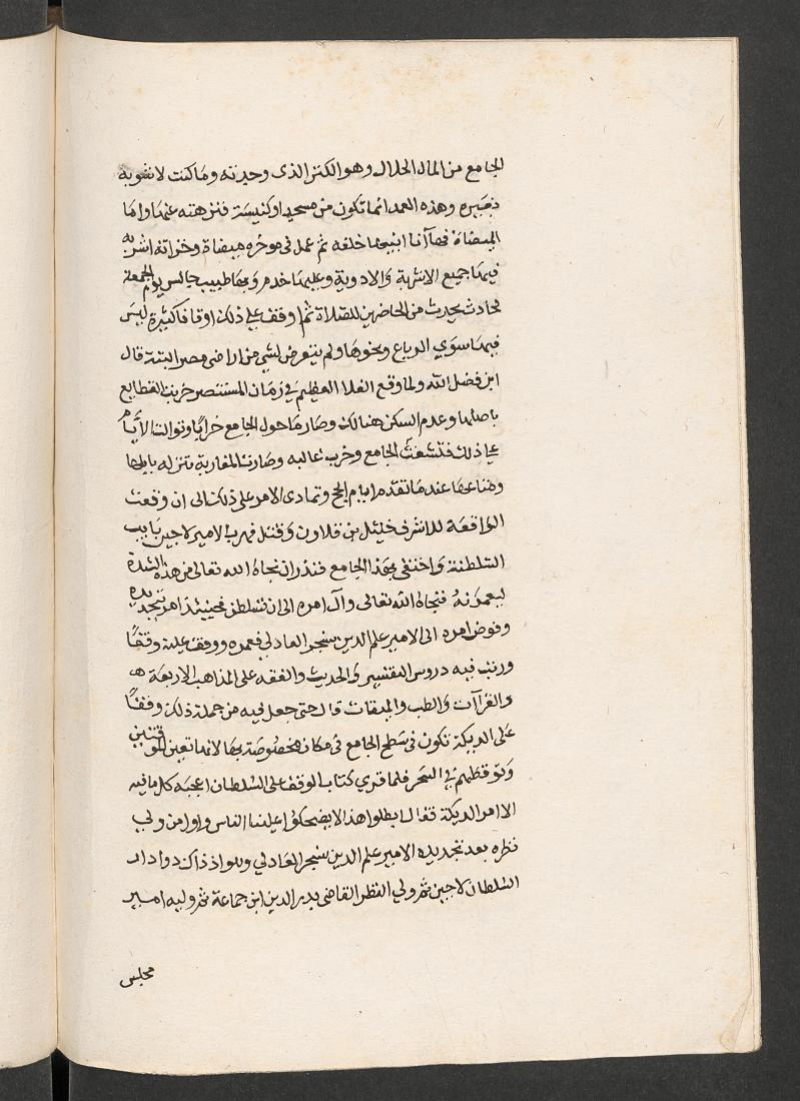 الجامع من المال الحلال وهو الكنز الذى وجدته وما كنت لاشوبه
بغيره وهذه العمد انما تكون من مسجد او كنيسة فنزهته عنها واما
الميضاة فها أنا ابنيها خلفه ثم عمل فى موخره ميضاة وخزانة اشربه
فيها جميع الاشربة والادوية وعليها خدم وبها طبيب جالس يوم الجمعة
لحادث يحدث من الحاضرين للصلاة ثم اوقف على ذلك اوقافا كثيرة ليس
فيها سوي الرباع ونحوها ولم يتعرض لشي من اراضى مصر البتة قال
ابن فضل الله ولما وقع الغلا العظيم في زمان المستنصر خربت القطايع
باصلها وعدم السكن هنالك وصار ما حول الجامع خرابا وتوالت الأيام
على ذلك فتشعث الجامع وخرب غالبه وصارت المغاربة تنزله باباها
ومتاعها عند ما تقدم ايام الحج وتمادى الامر على ذلك الى ان وقعت
الواقعة للاشرف خليل بن قلاون وقتل فهرب الامير لاجين نايب
السلطنة واختفى بهذا الجامع فنذر ان نجاه الله تعالى من هذه الشدة
ليعمرنه فنجاه الله تعالى وآل امره الى ان تسلطن فحينئذ امر بتجديده
وفوض امره الى الامير علم الدين سنجر العادلي فعمره ووقف عليه وقفا
ورتب فيه دروس التفسير والحديث والفقه على المذاهب الاربعة
والقرآت والطب والميقات قال حتى جعل فيه من جملة ذلك وقفا
على الديكة تكون فى سطح الجامع فى مكان مخصوصة بها لانها تعين الموقتين
وتوقظهم في السحر فلما قري كتاب الوقف على السلطان اعجبه كل ما فيه
الا امر الديكة فقال ابطلوا هذا لا يضحكوا علينا الناس واول من ولي
نظره بعد تجديده الامير علم الدين سنجر العادلي وهو اذ ذاك دوادار
السلطان لاجين ثم ولي النظر القاضى بدر الدين ابن جماعة ثم وليه امير
مجلس